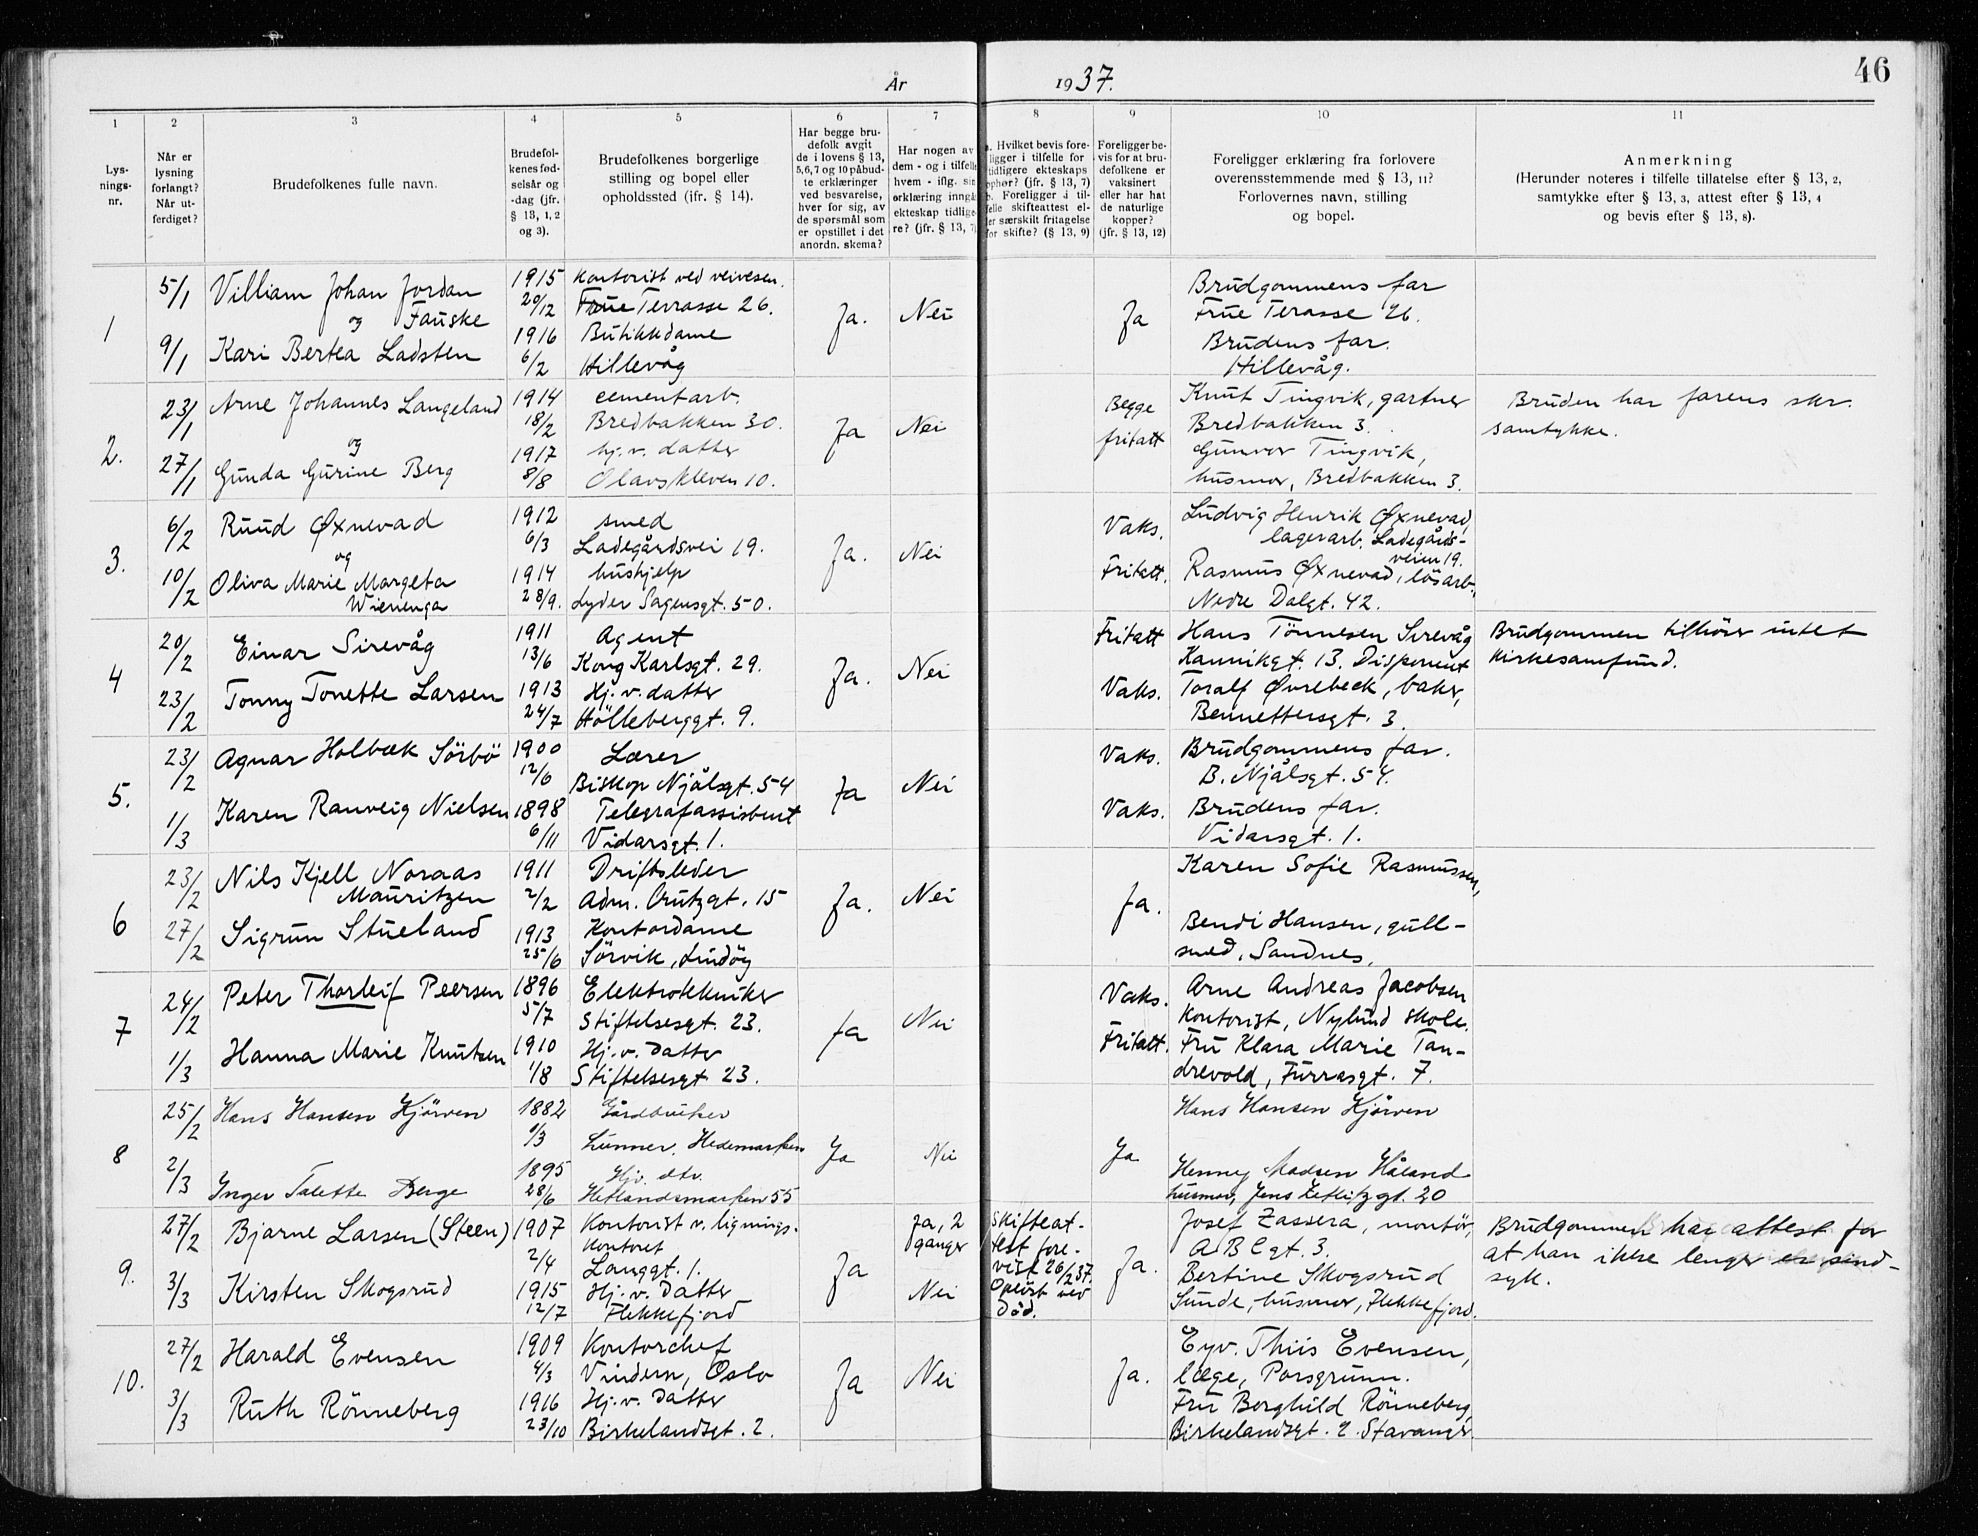 År 1937.
46
1 2 3 4 5 6 7 8 9 10 11
Lys-
nings-
nr.
Når er
lysning
forlangt?
Når ut-
ferdiget?
Brudefolkenes fulle navn.
Brudefol-
kenes fød-
selsår og
-dag (jfr.
§ 13, 1, 2
og 3).
Brudefolkenes borgerlige
stilling og bopel eller
opholdssted (ifr. § 14).
Har begge bru-
defolk avgit
de i lovens § 13,
5,6,7 og 10 påbud-
te erklæringer
ved besvarelse,
hver for sig, av
de spørsmål som
er opstillet i det
anordn. skema?
Har nogen av
dem - og i tilfelle
hvem - iflg. sin
erklæring inngåt
ekteskap tidlige-
re? (jfr. § 13, 7)
a. Hvilket bevis fore-
ligger i tilfelle for
tidligere ekteskaps
ophør? (jfr. § 13, 7)
b. Foreligger i til-
felle skifteattest el-
ler særskilt fritagelse
for skifte? (§ 13, 9)
Foreligger be-
vis for at bru-
defolkene er
vaksinert
eller har hat
de naturlige
kopper?
(jfr. § 13, 12)
Foreligger erklæring fra forlovere
overensstemmende med § 13, 11?
Forlovernes navn, stilling
og bopel.
Anmerkning
(Herunder noteres i tilfelle tillatelse efter § 13, 2,
samtykke efter § 13, 3, attest efter § 13, 4
og bevis efter § 13, 8).
1
5/1
9/1
Villiam Johan Jordan
og Fauske
Kari Bertea Ladsten
1915
20/12
1916
6/2
Kontorist ved veivesen.
Frue Terrasse 26.
Butikkdame
Hillevåg
Ja.
Nei
Ja
Brudgommens far
Frue Terasse 26.
Brudens far.
Hillevåg.
2.
23/1
27/1
Arne Johannes Langeland
og
Gunda Gurine Berg
1914
18/2
1917
8/8
cementarb.
Bredbakken 30.
hj. v. datter
Olavskleven 10.
Ja
Nei
Begge
fritatt
Knut Tingvik, gartner
Bredbakken 3.
Gunvor Tingvik,
husmor, Bredbakken 3.
Bruden har farens skr.
samtykke.
3.
6/2
10/2
Ruud Øxnevad
og
Oliva Marie Margeta
Wienenga
1912
6/3
1914
28/9.
smed
Ladegårdsvei 19.
hushjelp
Lyder Sagensgt. 50.
Ja.
Nei
Vaks.
Fritatt.
Ludvig Henrik Øxnevad,
lagerarb. Ladegårds-
veien 19.
Rasmus Øxnevad, løsarb.,
Nedre Dalgt. 42.
4
20/2
23/2
Einar Sirevåg
Tonny Tonette Larsen
1911
13/6
1913
24/7
Agent
Kong Karlsgt. 29.
Hj. v. datter
Hölleberggt. 9.
Ja.
Nei
Fritatt
Vaks.
Hans Tönnesen Sirevåg
Kannikgt. 13. Disponent
Toralf Øvrebeck, baker,
Bennettersgt. 3.
Brudgommen tilhører intet
kirkesamfund.
5.
23/2
1/3
Agnar Holbæk Sörbö
Karen Ranveig Nielsen
1900
12/6
1898
6/11
Lærer
Biskop Njålsgt. 54
Telegrafassistent
Vidarsgt. 1.
Ja
Nei
Vaks.
Vaks.
Brudgommens far.
B. Njålsgt. 54.
Brudens far.
Vidarsgt. 1.
6
23/2
27/2
Nils Kjell Noraas
Mauritzen
Sigrun Stueland
1911
2/2
1913
25/6
Driftsleder
Adm. Crutzgt. 15
Kontordame
Sörvik, Lindöy
Ja.
Nei
Ja.
Karen Sofie Rasmussen,
Bendi Hansen, gull-
smed, Sandnes.
7
24/2
1/3
Peter Thorleif Peersen
Hanna Marie Knutsen
1896
5/7
1910
1/8
Elektrotekniker
Stiftelsesgt. 23.
Hj. v. Datter
Stiftelsesgt 23.
Ja
Nei
Vaks.
Fritatt.
Arne Andreas Jacobsen
Kontorist, Nylund skole.
Fru Klara Marie Tan-
drevold, Furrasgt. 7.
8
25/2
2/3
Hans Hansen Kjörven
Inger Talette Berge
1882
1/3
1895
28/6
Gårdbruker
Lunner, Hedemarken
Hjv. dtr.
Hetlandsmarken 55
Ja
Nei
Ja
Hans Hansen Kjörven
Henny Madsen Håland
husmor, Jens Zetlitzgt. 20
9.
27/2
3/3
Bjarne Larsen (Steen)
Kirsten Skogsrud
1907
2/4
1915
12/7
Kontorist v. lignings-
kontoret
Langgt. 1.
Hj. v. Datter
Flekkefjord
Ja
Ja, 2
ganger
Nei
Skifteat-
test fore-
vist 26/2 37.
Opløst ved
Död.
Ja.
Josef Zassera, montör,
ABCgt. 3.
Bertine Skogsrud
Sunde, husmor, Flekkefjord.
Brudgommen har attest for
at han ikke lenger er sind-
syk.
10.
27/2
3/3
Harald Evensen
Ruth Rönneberg
1909
4/3
1916
23/10
Kontorchef
Vindern, Oslo
Hj. v. Datter
Birkelandsgt. 2.
Ja
Nei
Ja.
Eyv. Thiis Evensen,
læge, Porsgrunn.
Fru Borghild Rönneberg
Birkelandsgt. 2. Stavanger.